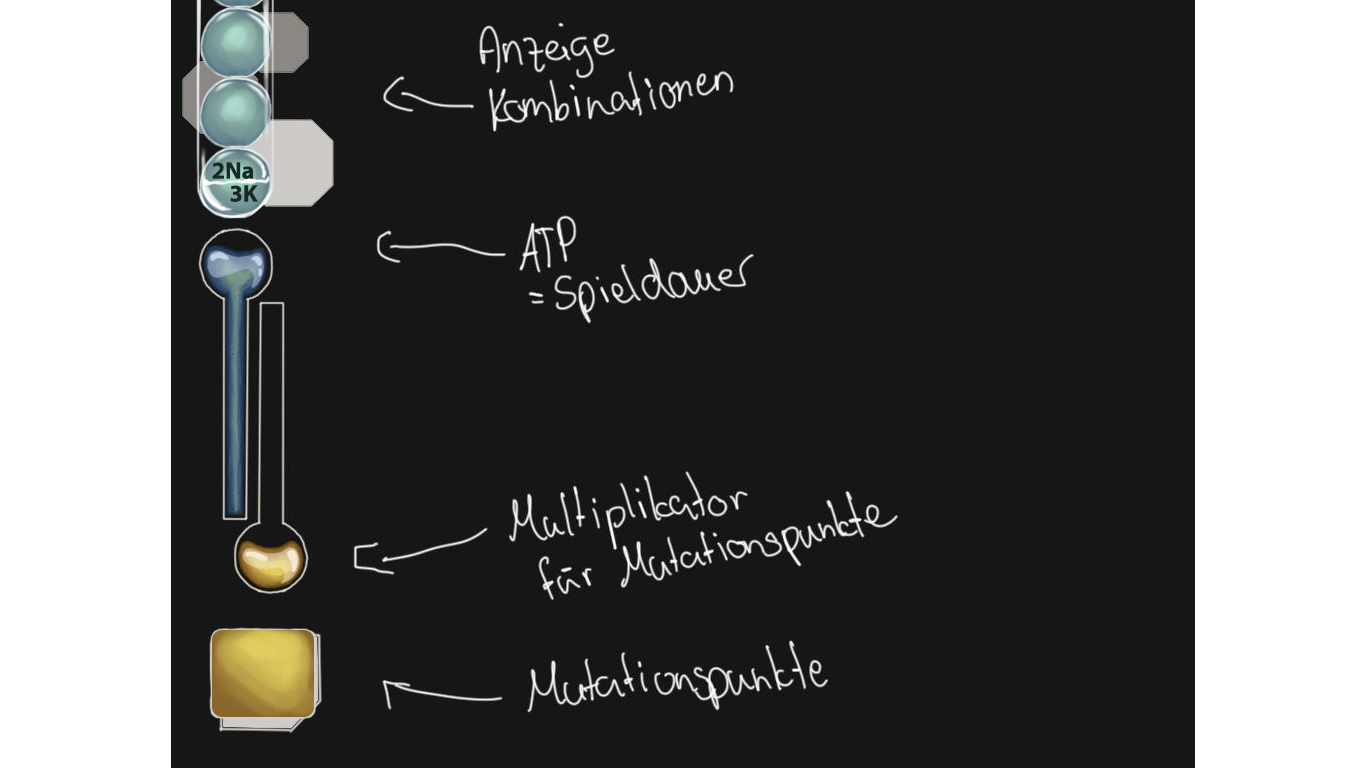 Anzeige
Kombinationen
2Na
3K
ATP
= Spieldauer
Multiplikator
für Mutationspunkte
Mutationspunkte